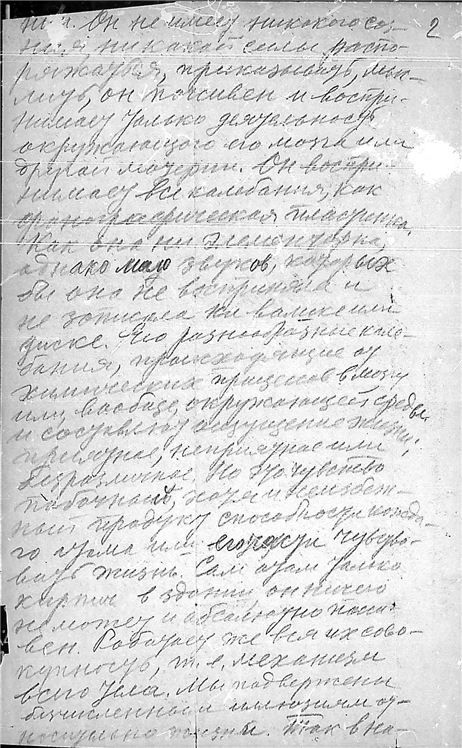 2
т.д. Он не имеет никакого соз-
ния, никакой силы распо-
ряжаться, приказывать, мыс-
лить, он пассивен и воспри-
нимает только деятельность
окружающего его мозга или
другой материи. Он воспри-
нимает все колебания, как
фонографическая пластинка,
Как она ни элементарна,
однако мало звуков, которых
бы она не восприняла и
не записала на валике или
диске. Его разнообразные коле-
бания, происходящие от
химических процессов в мозгу
или вообще, окружающей среды
и составляют ощущение жизни:
приятное, неприятное или
безразличное. Но это чувство
побочный, хотя и неизбеж-
ный продукт способности каждо-
го атома или его части чувство-
вать жизнь. Сам атом только
кирпич в здании он ничего
не может и абсолютно пасси-
вен. Работает же вся их сово-
купность, т.е. механизм
всего тела. Мы подвержены
бесчисленным иллюзиям от-
носительно жизни. Так в на-